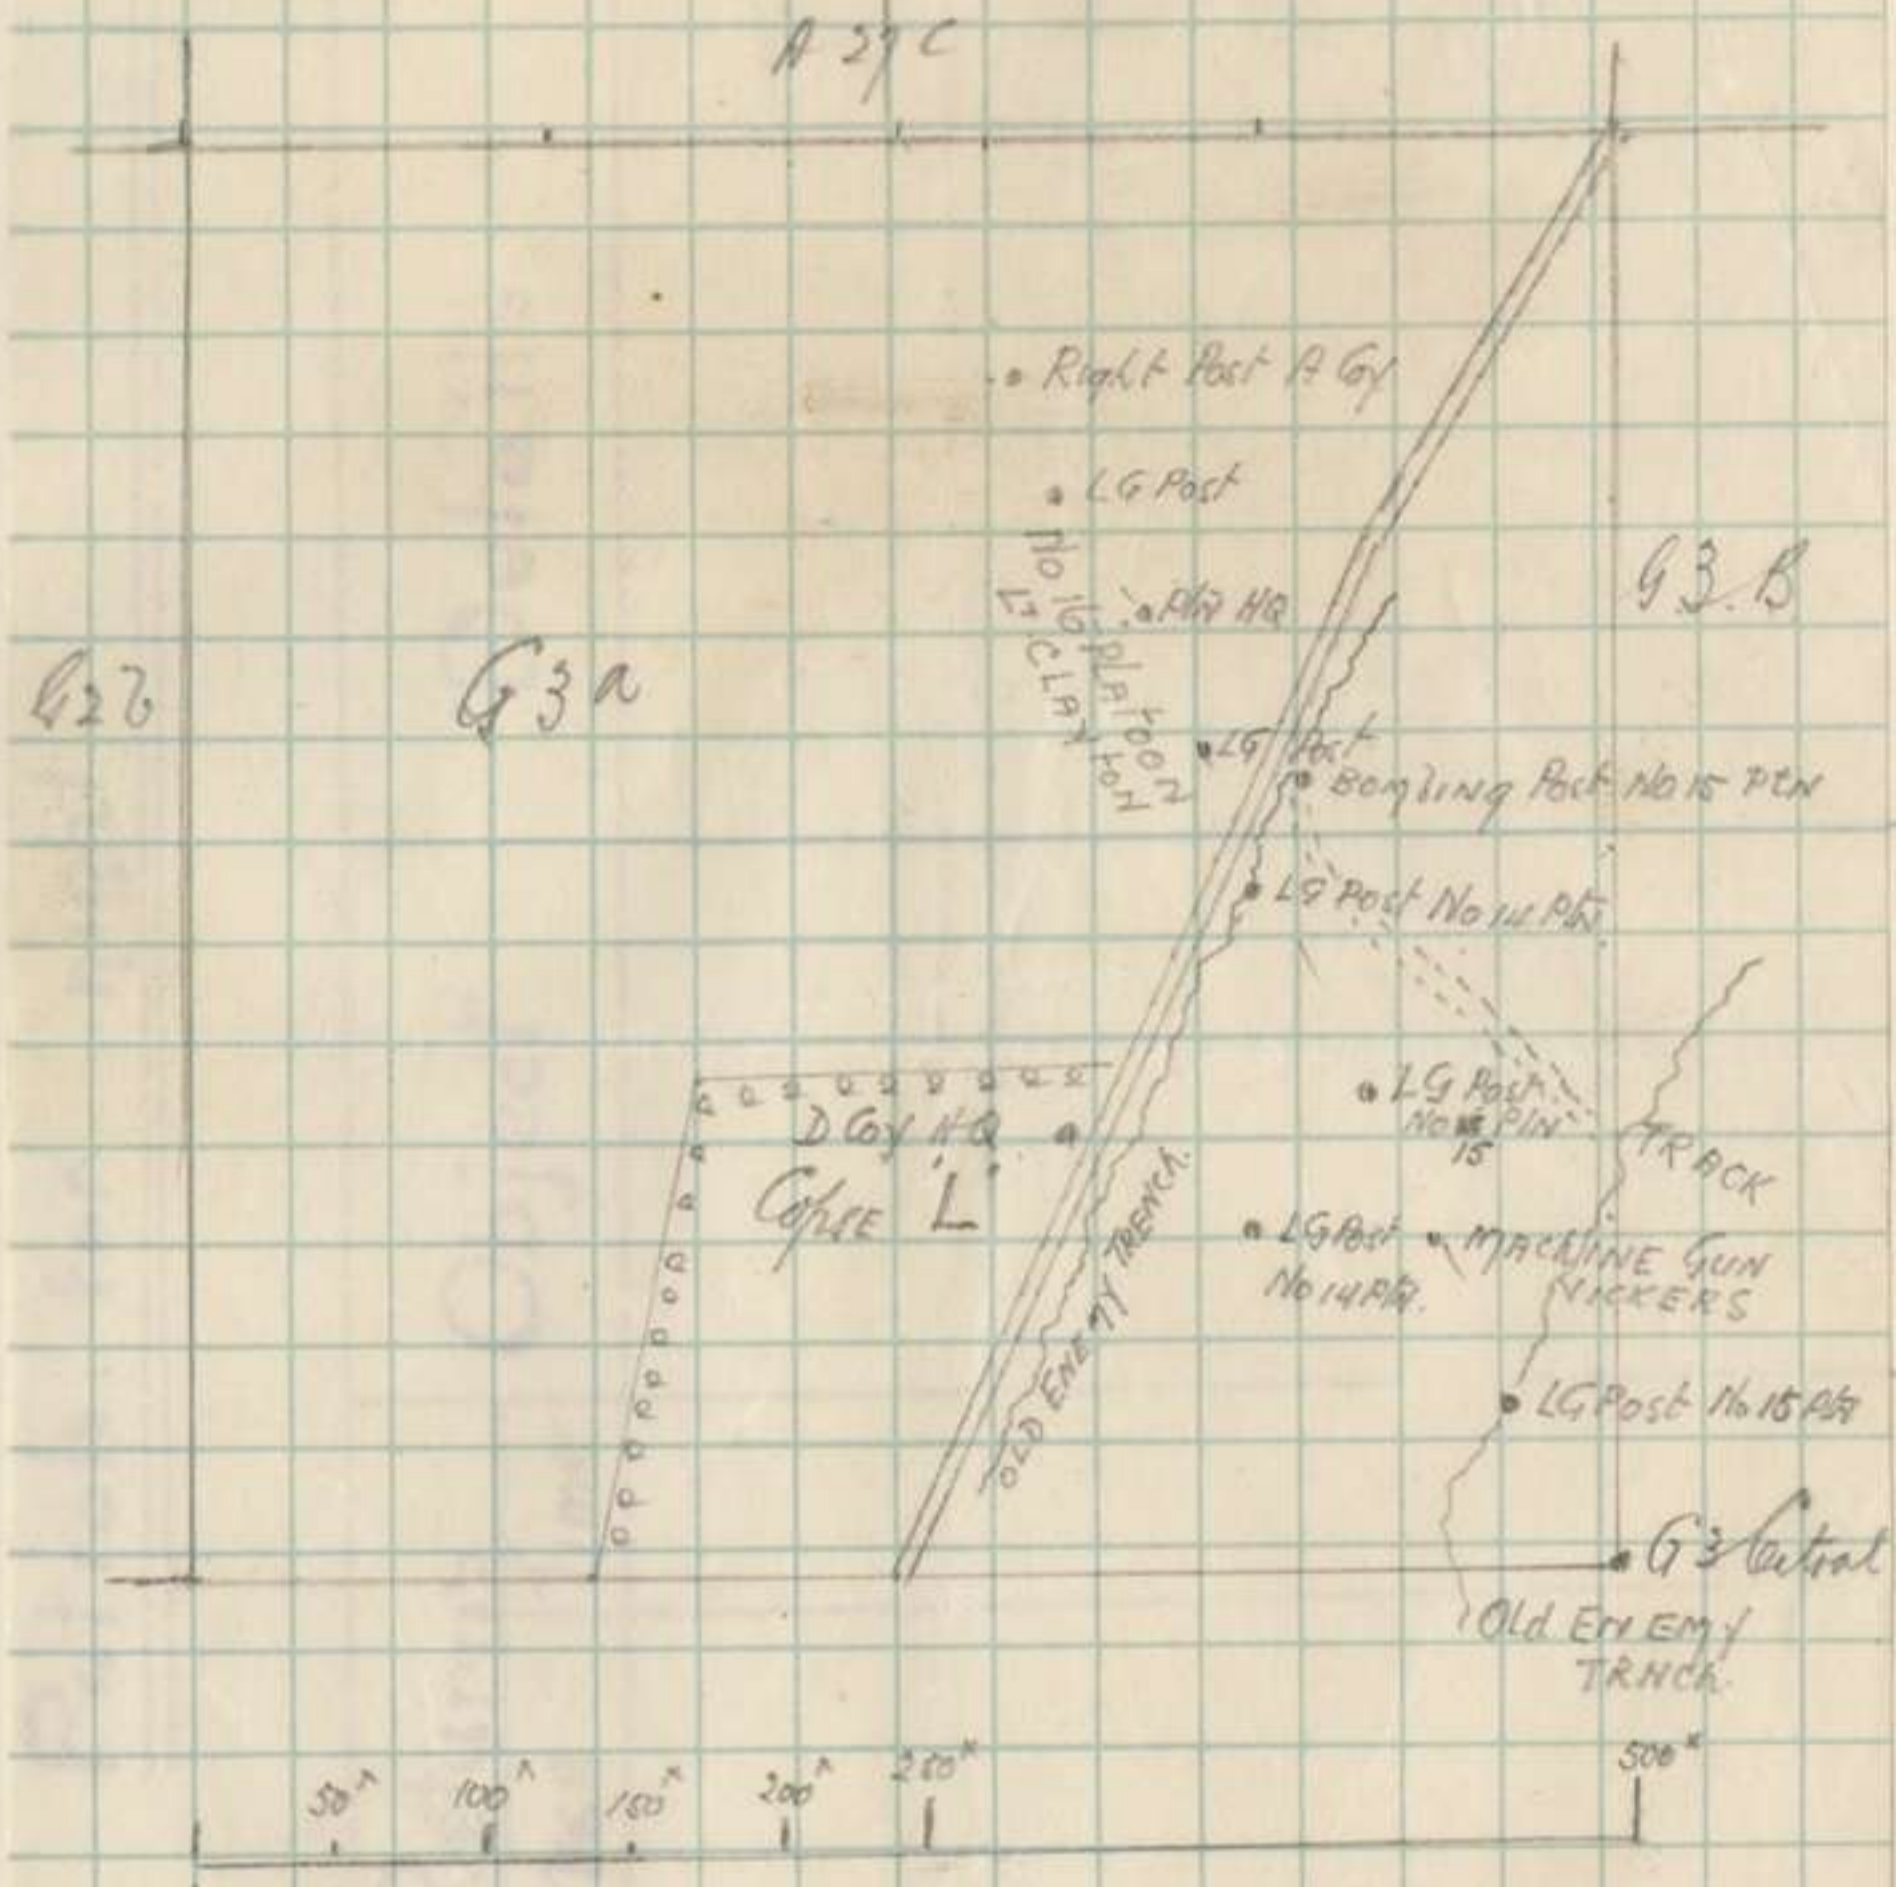 A 27 C
Right Post A Coy
LG Post
No 16 PLATOON
Lt CLAYTON
Pln HQ
G 3. B
G2b
G 3 a
LG Post
Bombing Post No 15 PLN
LG Post No 14 Pln
LG Post
No 15 Pln
TRACK
D Coy HQ
Copse "L"
OLD ENEMY TRENCH.
LG Post
No 14 Pln.
MACHINE GUN
VICKERS
LG Post No 15 Pln
G 3 Central
Old ENEMY
TRNCh.
50ˣ
100ˣ
150ˣ
200ˣ
250ˣ
500ˣ